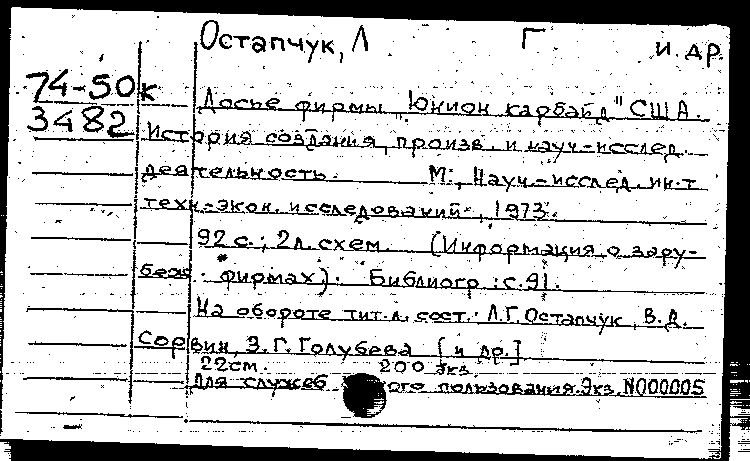 Остапчук, Л Г и др.
74-50к
3482
Досье фирмы „Юнион карбайд" США.
История создания, произв. и науч-исслед.
деятельность. М., Науч-исслед. ин-т
техн-экон. исследований, 1973.
92 с.; 2л. схем. (Информация о зару-
беж. фирмах). Библиогр.: с. 91.
На обороте тит. л. сост.: Л.Г. Остапчук, В.Д.
Сорвин, З.Г. Голубева [и др.]
22см. 200 экз
Для служеб ого пользования. Экз. N000005